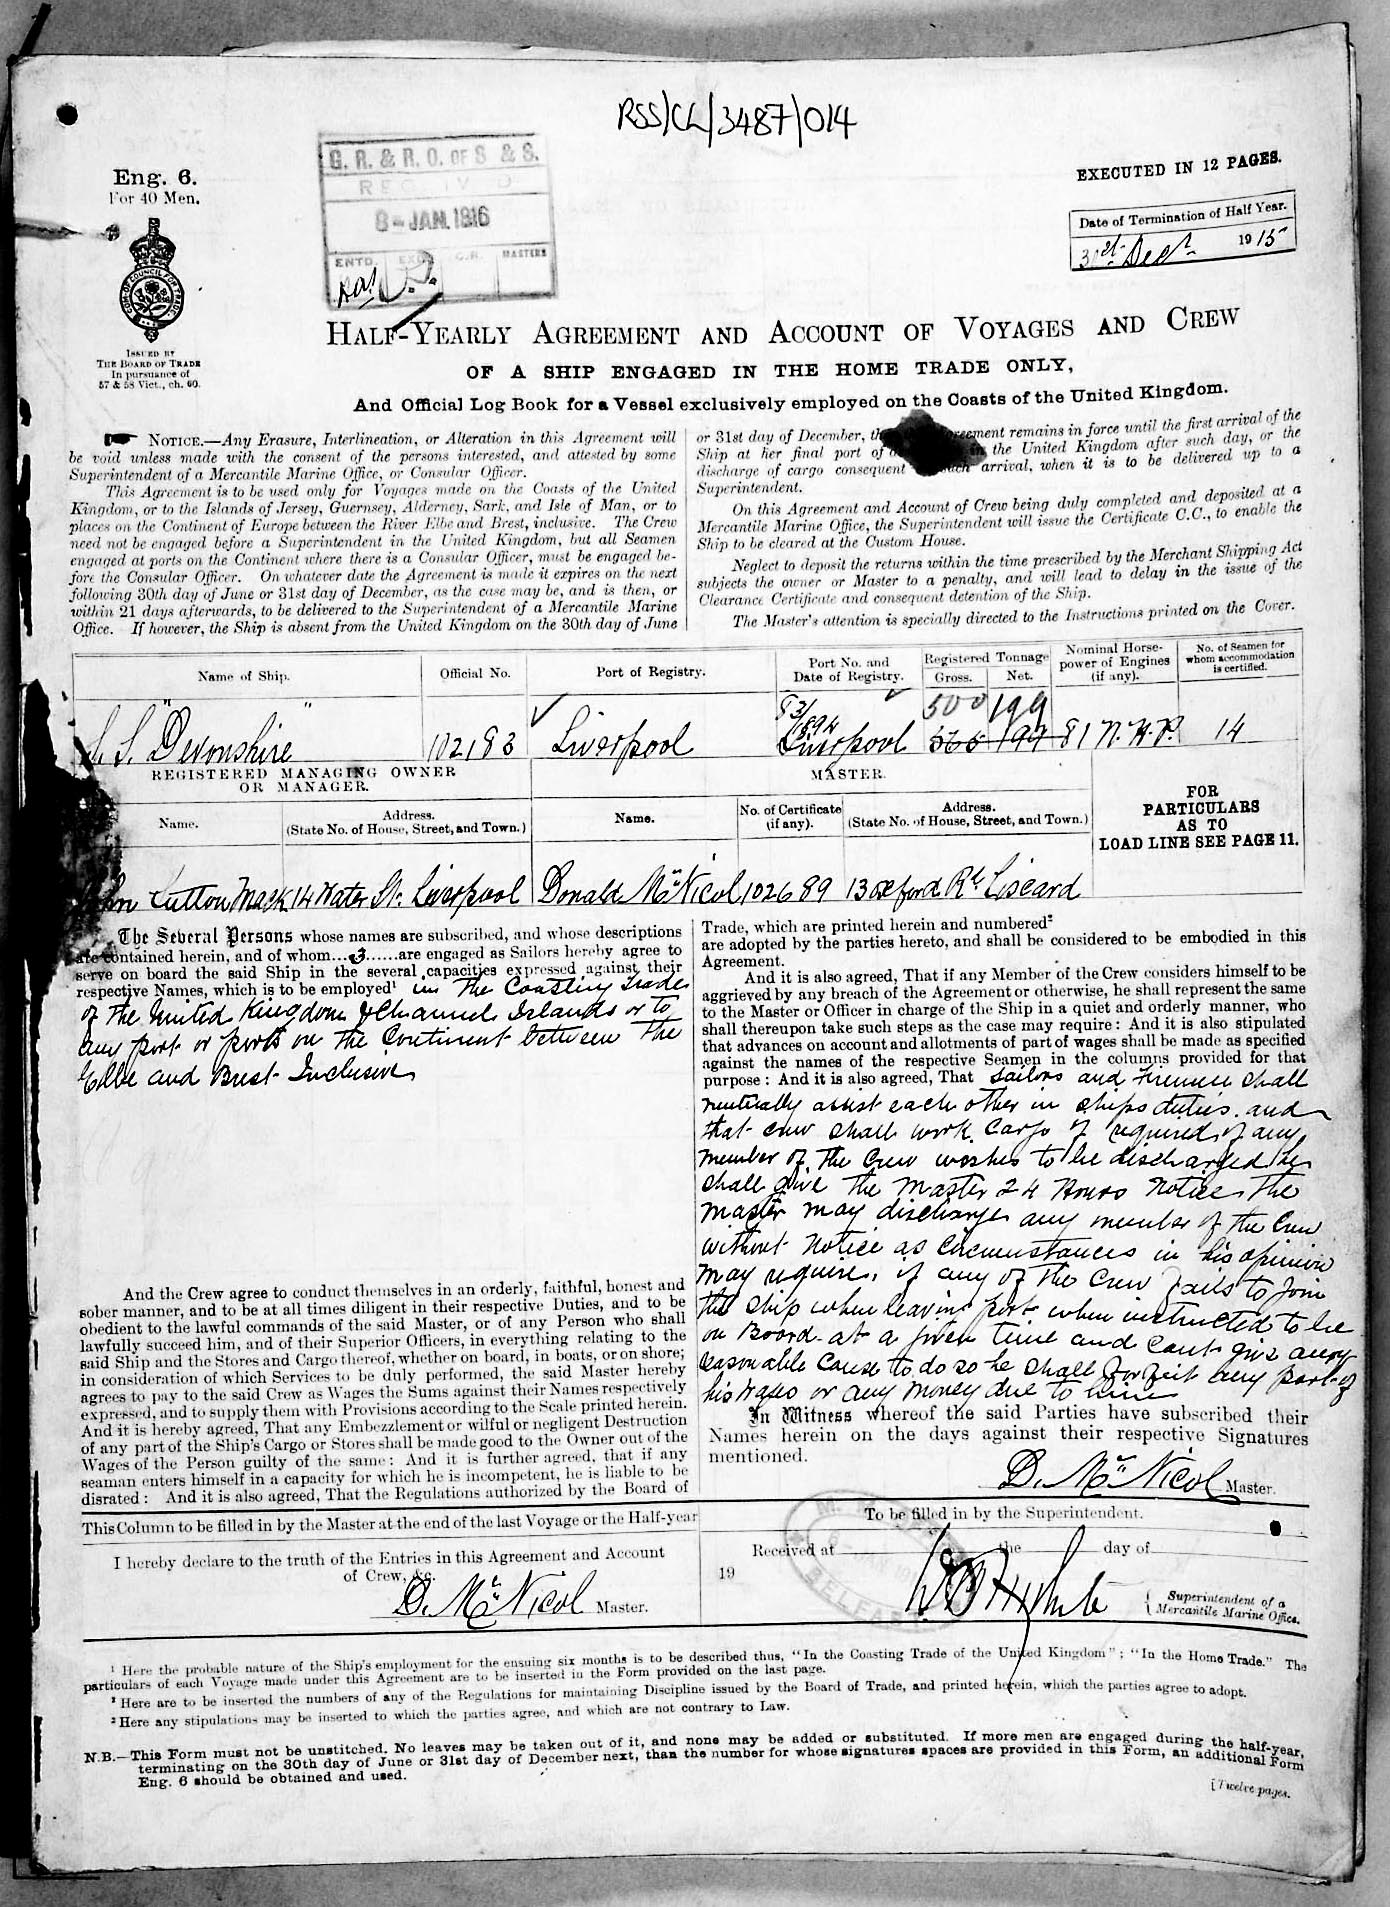 RSS/CL/3487/014
Eng. 6.
For 40 Men.
G. R. & R. O. OF S & S.
8 - JAN. 1916
ENTD.
MASTERS
EXECUTED IN 12 PAGES.
Date of Termination of Half Year.
31st Decr 1915
COM. OF COUNCIL FOR TRADE
ISSUED BY
THE BOARD OF TRADE
In pursuance of
57 & 58 Vict., ch. 60.
HALF-YEARLY AGREEMENT AND ACCOUNT OF VOYAGES AND CREW
OF A SHIP ENGAGED IN THE HOME TRADE ONLY,
And Official Log Book for a Vessel exclusively employed on the Coasts of the United Kingdom.
NOTICE.—Any Erasure, Interlineation, or Alteration in this Agreement will
be void unless made with the consent of the persons interested, and attested by some
Superintendent of a Mercantile Marine Office, or Consular Officer.
This Agreement is to be used only for Voyages made on the Coasts of the United
Kingdom, or to the Islands of Jersey, Guernsey, Alderney, Sark, and Isle of Man, or to
places on the Continent of Europe between the River Elbe and Brest, inclusive. The Crew
need not be engaged before a Superintendent in the United Kingdom, but all Seamen
engaged at ports on the Continent where there is a Consular Officer, must be engaged be-
fore the Consular Officer. On whatever date the Agreement is made it expires on the next
following 30th day of June or 31st day of December, as the case may be, and is then, or
within 21 days afterwards, to be delivered to the Superintendent of a Mercantile Marine
Office. If however, the Ship is absent from the United Kingdom on the 30th day of June
or 31st day of December, the Agreement remains in force until the first arrival of the
Ship at her final port of in the United Kingdom after such day, or the
discharge of cargo consequent such arrival, when it is to be delivered up to a
Superintendent.
On this Agreement and Account of Crew being duly completed and deposited at a
Mercantile Marine Office, the Superintendent will issue the Certificate C.C., to enable the
Ship to be cleared at the Custom House.
Neglect to deposit the returns within the time prescribed by the Merchant Shipping Act
subjects the owner or Master to a penalty, and will lead to delay in the issue of the
Clearance Certificate and consequent detention of the Ship.
The Master's attention is specially directed to the Instructions printed on the Cover.
Name of Ship. Official No. Port of Registry. Port No. and Date of Registry. Registered Tonnage Gross. Net. Nominal Horse-power of Engines (if any). No. of Seamen for whom accommodation is certified.
83/1894 500 199
S. S. "Devonshire" 102183 Liverpool Liverpool 565 194 81 N.H.P. 14
REGISTERED MANAGING OWNER
OR MANAGER.
MASTER.
Name. Address. (State No. of House, Street, and Town.) Name. No. of Certificate (if any). Address. (State No. of House, Street, and Town.)
FOR
PARTICULARS
AS TO
LOAD LINE SEE PAGE 11.
John Sutton Mack 14 Water St. Liverpool Donald McNicol 102689 13 Oxford Rd. Liscard
The Several Persons whose names are subscribed, and whose descriptions
are contained herein, and of whom...3......are engaged as Sailors hereby agree to
serve on board the said Ship in the several capacities expressed against their
respective Names, which is to be employed¹ in The Coasting Trade
of the United Kingdom & Channel Islands or to
any port or ports on the Continent between The
Elbe and Brest Inclusive
And the Crew agree to conduct themselves in an orderly, faithful, honest and
sober manner, and to be at all times diligent in their respective Duties, and to be
obedient to the lawful commands of the said Master, or of any Person who shall
lawfully succeed him, and of their Superior Officers, in everything relating to the
said Ship and the Stores and Cargo thereof, whether on board, in boats, or on shore;
in consideration of which Services to be duly performed, the said Master hereby
agrees to pay to the said Crew as Wages the Sums against their Names respectively
expressed, and to supply them with Provisions according to the Scale printed herein.
And it is hereby agreed, That any Embezzlement or wilful or negligent Destruction
of any part of the Ship's Cargo or Stores shall be made good to the Owner out of the
Wages of the Person guilty of the same: And it is further agreed, that if any
seaman enters himself in a capacity for which he is incompetent, he is liable to be
disrated: And it is also agreed, That the Regulations authorized by the Board of
Trade, which are printed herein and numbered²
are adopted by the parties hereto, and shall be considered to be embodied in this
Agreement.
And it is also agreed, That if any Member of the Crew considers himself to be
aggrieved by any breach of the Agreement or otherwise, he shall represent the same
to the Master or Officer in charge of the Ship in a quiet and orderly manner, who
shall thereupon take such steps as the case may require: And it is also stipulated
that advances on account and allotments of part of wages shall be made as specified
against the names of the respective Seamen in the columns provided for that
purpose: And it is also agreed, That Sailors and Firemen shall
mutually assist each other in ships duties. and
that crew shall work Cargo if required, if any
member of The Crew wishes to be discharged he
shall give The Master 24 Hours Notice, The
Master may discharge any member of the Crew
without Notice as Circumstances in his opinion
may require, if any of The Crew fails to Join
the ship when leaving port when instructed to be
on Board at a given time and Cant give any
reasonable Cause to do so he shall forfeit any part of
his wages or any money due to him
In Witness whereof the said Parties have subscribed their
Names herein on the days against their respective Signatures
mentioned.
D. McNicol Master.
This Column to be filled in by the Master at the end of the last Voyage or the Half-year
I hereby declare to the truth of the Entries in this Agreement and Account
of Crew, &c.
D. McNicol Master.
To be filled in by the Superintendent.
Received at the day of
19
BELFAST
Superintendent of a
Mercantile Marine Office.
¹ Here the probable nature of the Ship's employment for the ensuing six months is to be described thus, "In the Coasting Trade of the United Kingdom"; "In the Home Trade." The
particulars of each Voyage made under this Agreement are to be inserted in the Form provided on the last page.
² Here are to be inserted the numbers of any of the Regulations for maintaining Discipline issued by the Board of Trade, and printed herein, which the parties agree to adopt.
³ Here any stipulations may be inserted to which the parties agree, and which are not contrary to Law.
N.B.—This Form must not be unstitched. No leaves may be taken out of it, and none may be added or substituted. If more men are engaged during the half-year,
terminating on the 30th day of June or 31st day of December next, than the number for whose signatures spaces are provided in this Form, an additional Form
Eng. 6 should be obtained and used.
[Twelve pages.